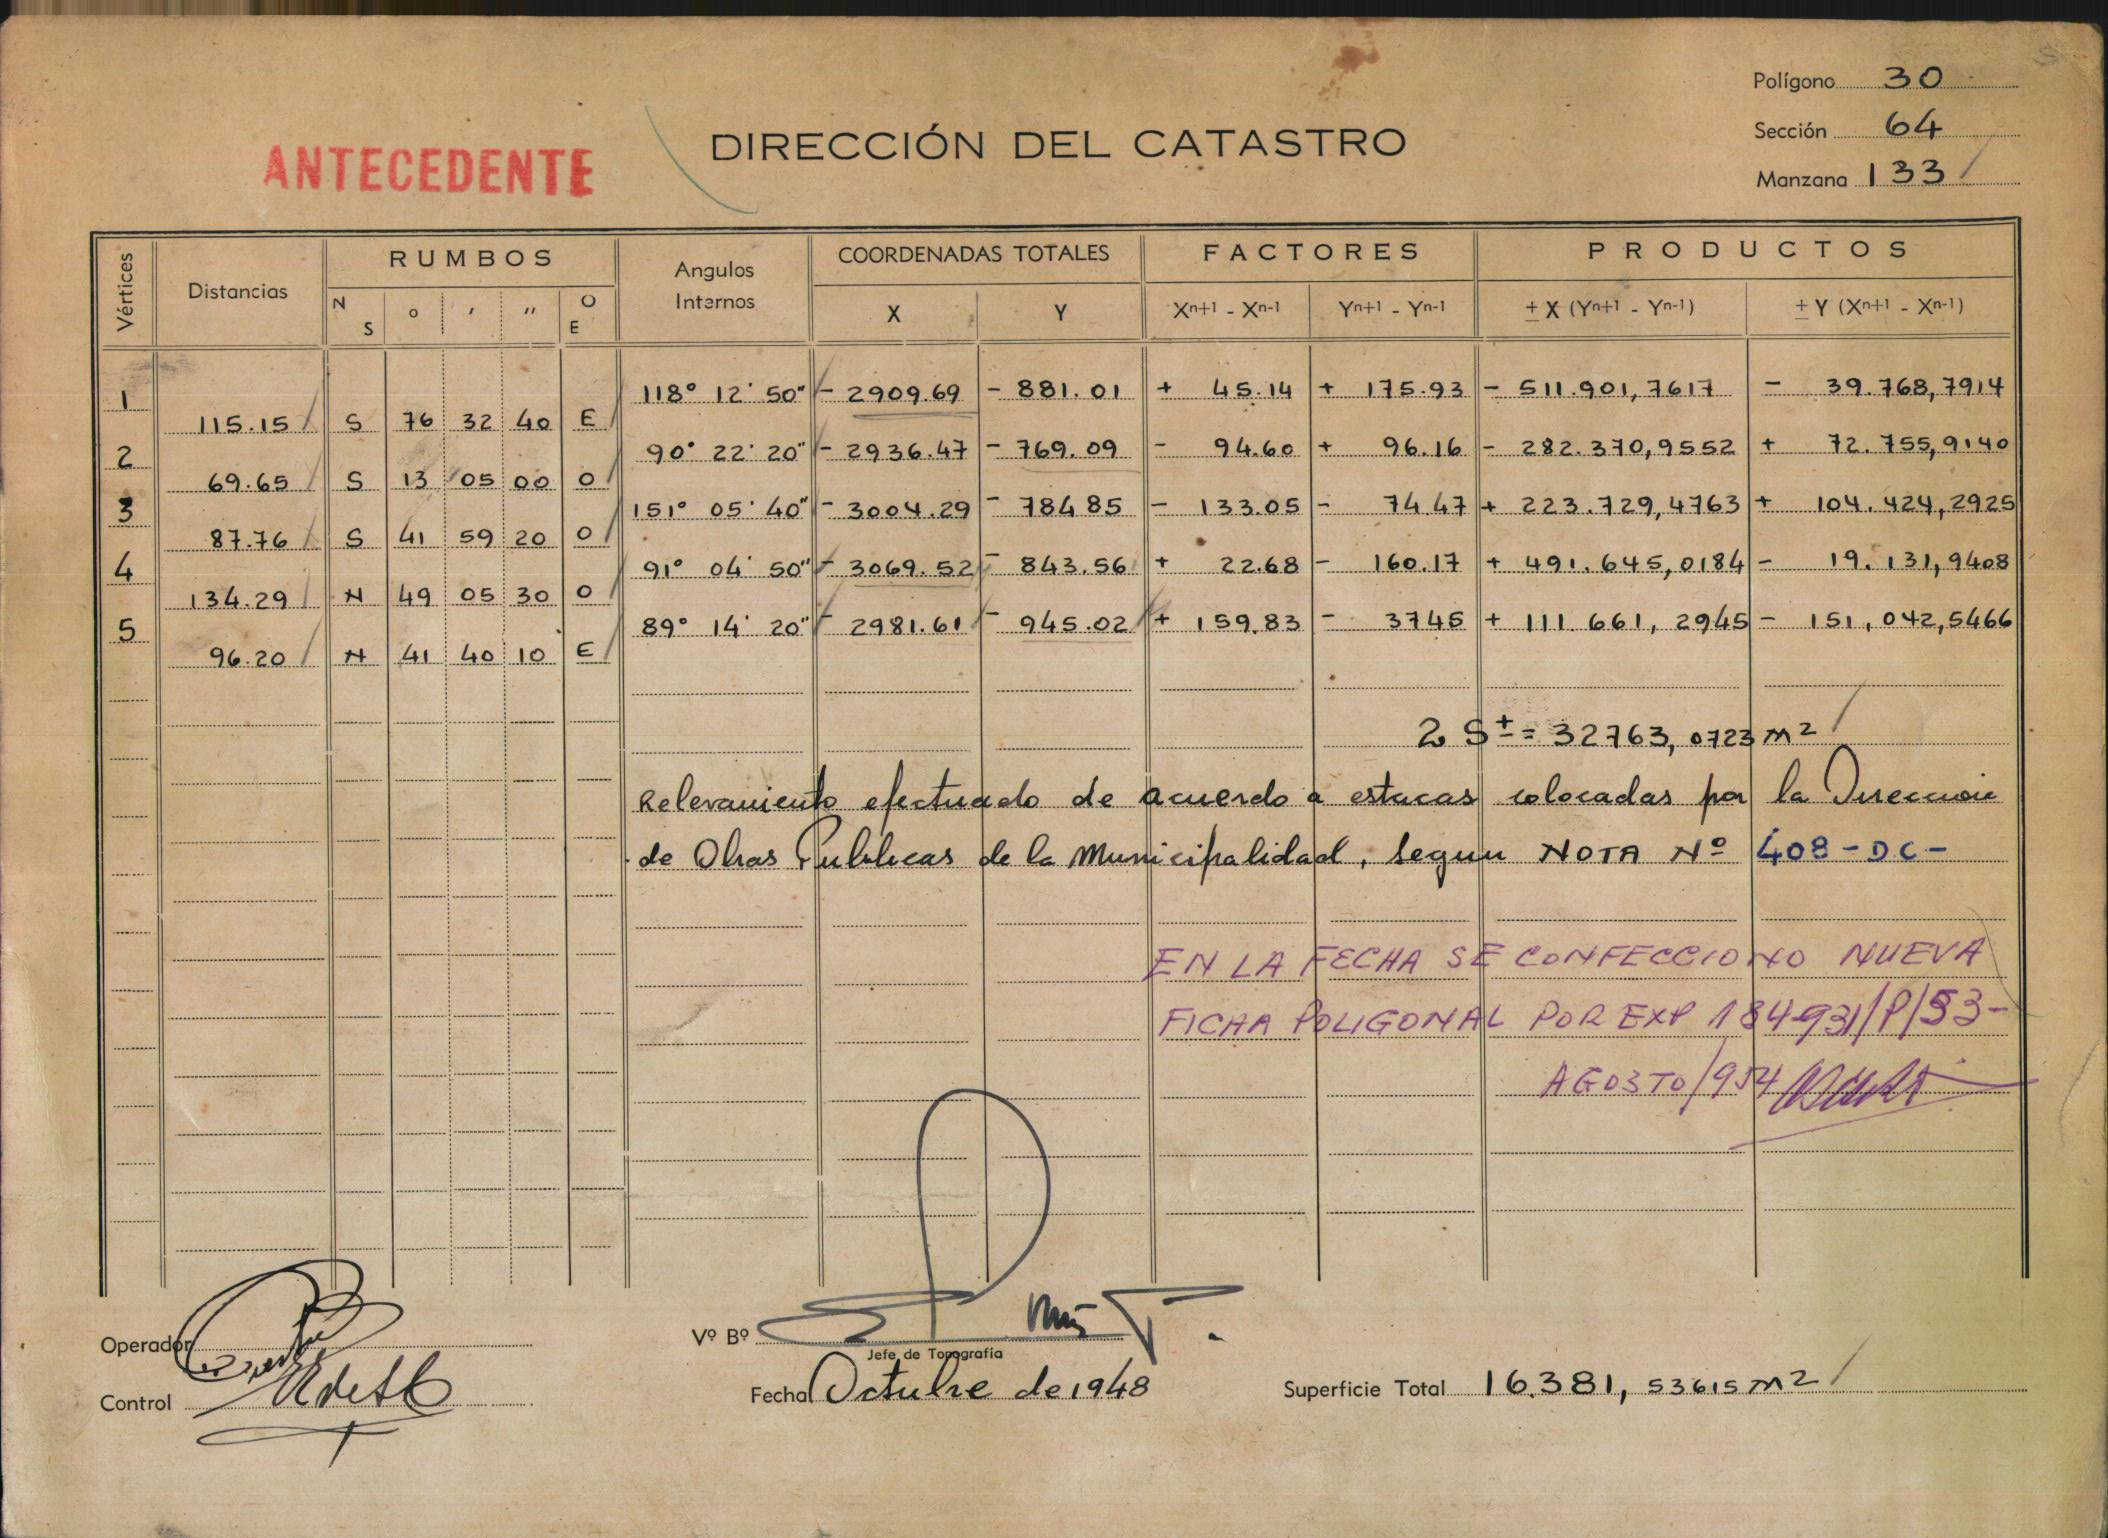 Polígono 30
Sección 64
Manzana 133
ANTECEDENTE
DIRECCIÓN DEL CATASTRO
Vértices Distancias RUMBOS Angulos Internos COORDENADAS TOTALES FACTORES PRODUCTOS
N S ° ' " O E X Y Xn+1 - Xn-1 Yn+1 - Yn-1 ± X (Yn+1 - Yn-1) ± Y (Xn+1 - Xn-1)
1 118° 12' 50" - 2909.69 - 881.01 + 45.14 + 175.93 - 511.901,7617 - 39.768,7914
115.15 S 76 32 40 E
2 90° 22' 20" - 2936.47 - 769.09 - 94.60 + 96.16 - 282.370,9552 + 72.755,9140
69.65 S 13 05 00 O
3 151° 05' 40" - 3004.29 - 784 85 - 133.05 - 74 47 + 223.729,4763 + 104.424,2925
87.76 S 41 59 20 O
4 91° 04' 50" - 3069.52 - 843.56 + 22.68 - 160.17 + 491.645,0184 - 19.131,9408
134.29 N 49 05 30 O
5 89° 14' 20" - 2981.61 - 945.02 + 159.83 - 3745 + 111 661, 2945 - 151,042,5466
96.20 N 41 40 10 E
2 S ± = 32763,0723 m2
Relevamiento efectuado de acuerdo a estacas colocadas por la Direccion
de Obras Publicas de la Municipalidad, segun NOTA Nº 408-DC-
EN LA FECHA SE CONFECCIONO NUEVA
FICHA POLIGONAL POR EXP 184931/P/53-
AGOSTO/954
Operador
Vº Bº
Jefe de Topografía
Control
Fecha Octubre de 1948
Superficie Total 16.381, 53615 m2